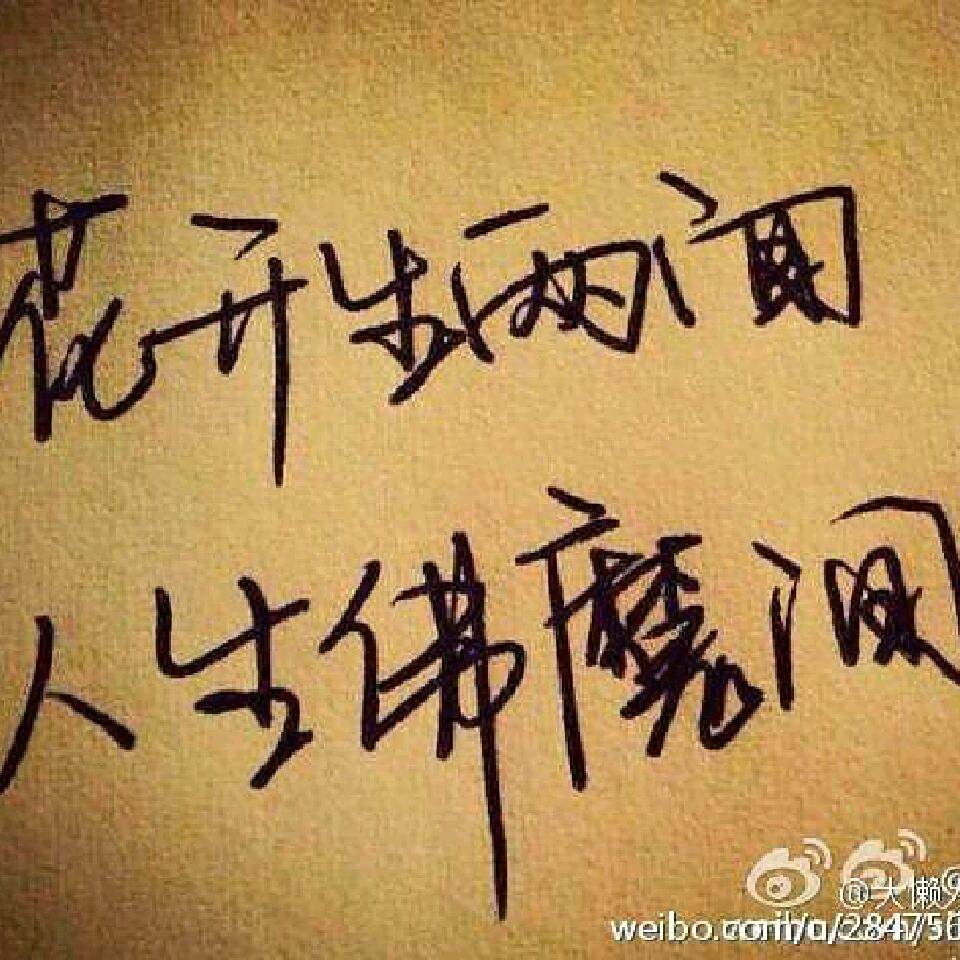 花开生两间
人生佛魔间
@大懒
weibo.com/u/284756